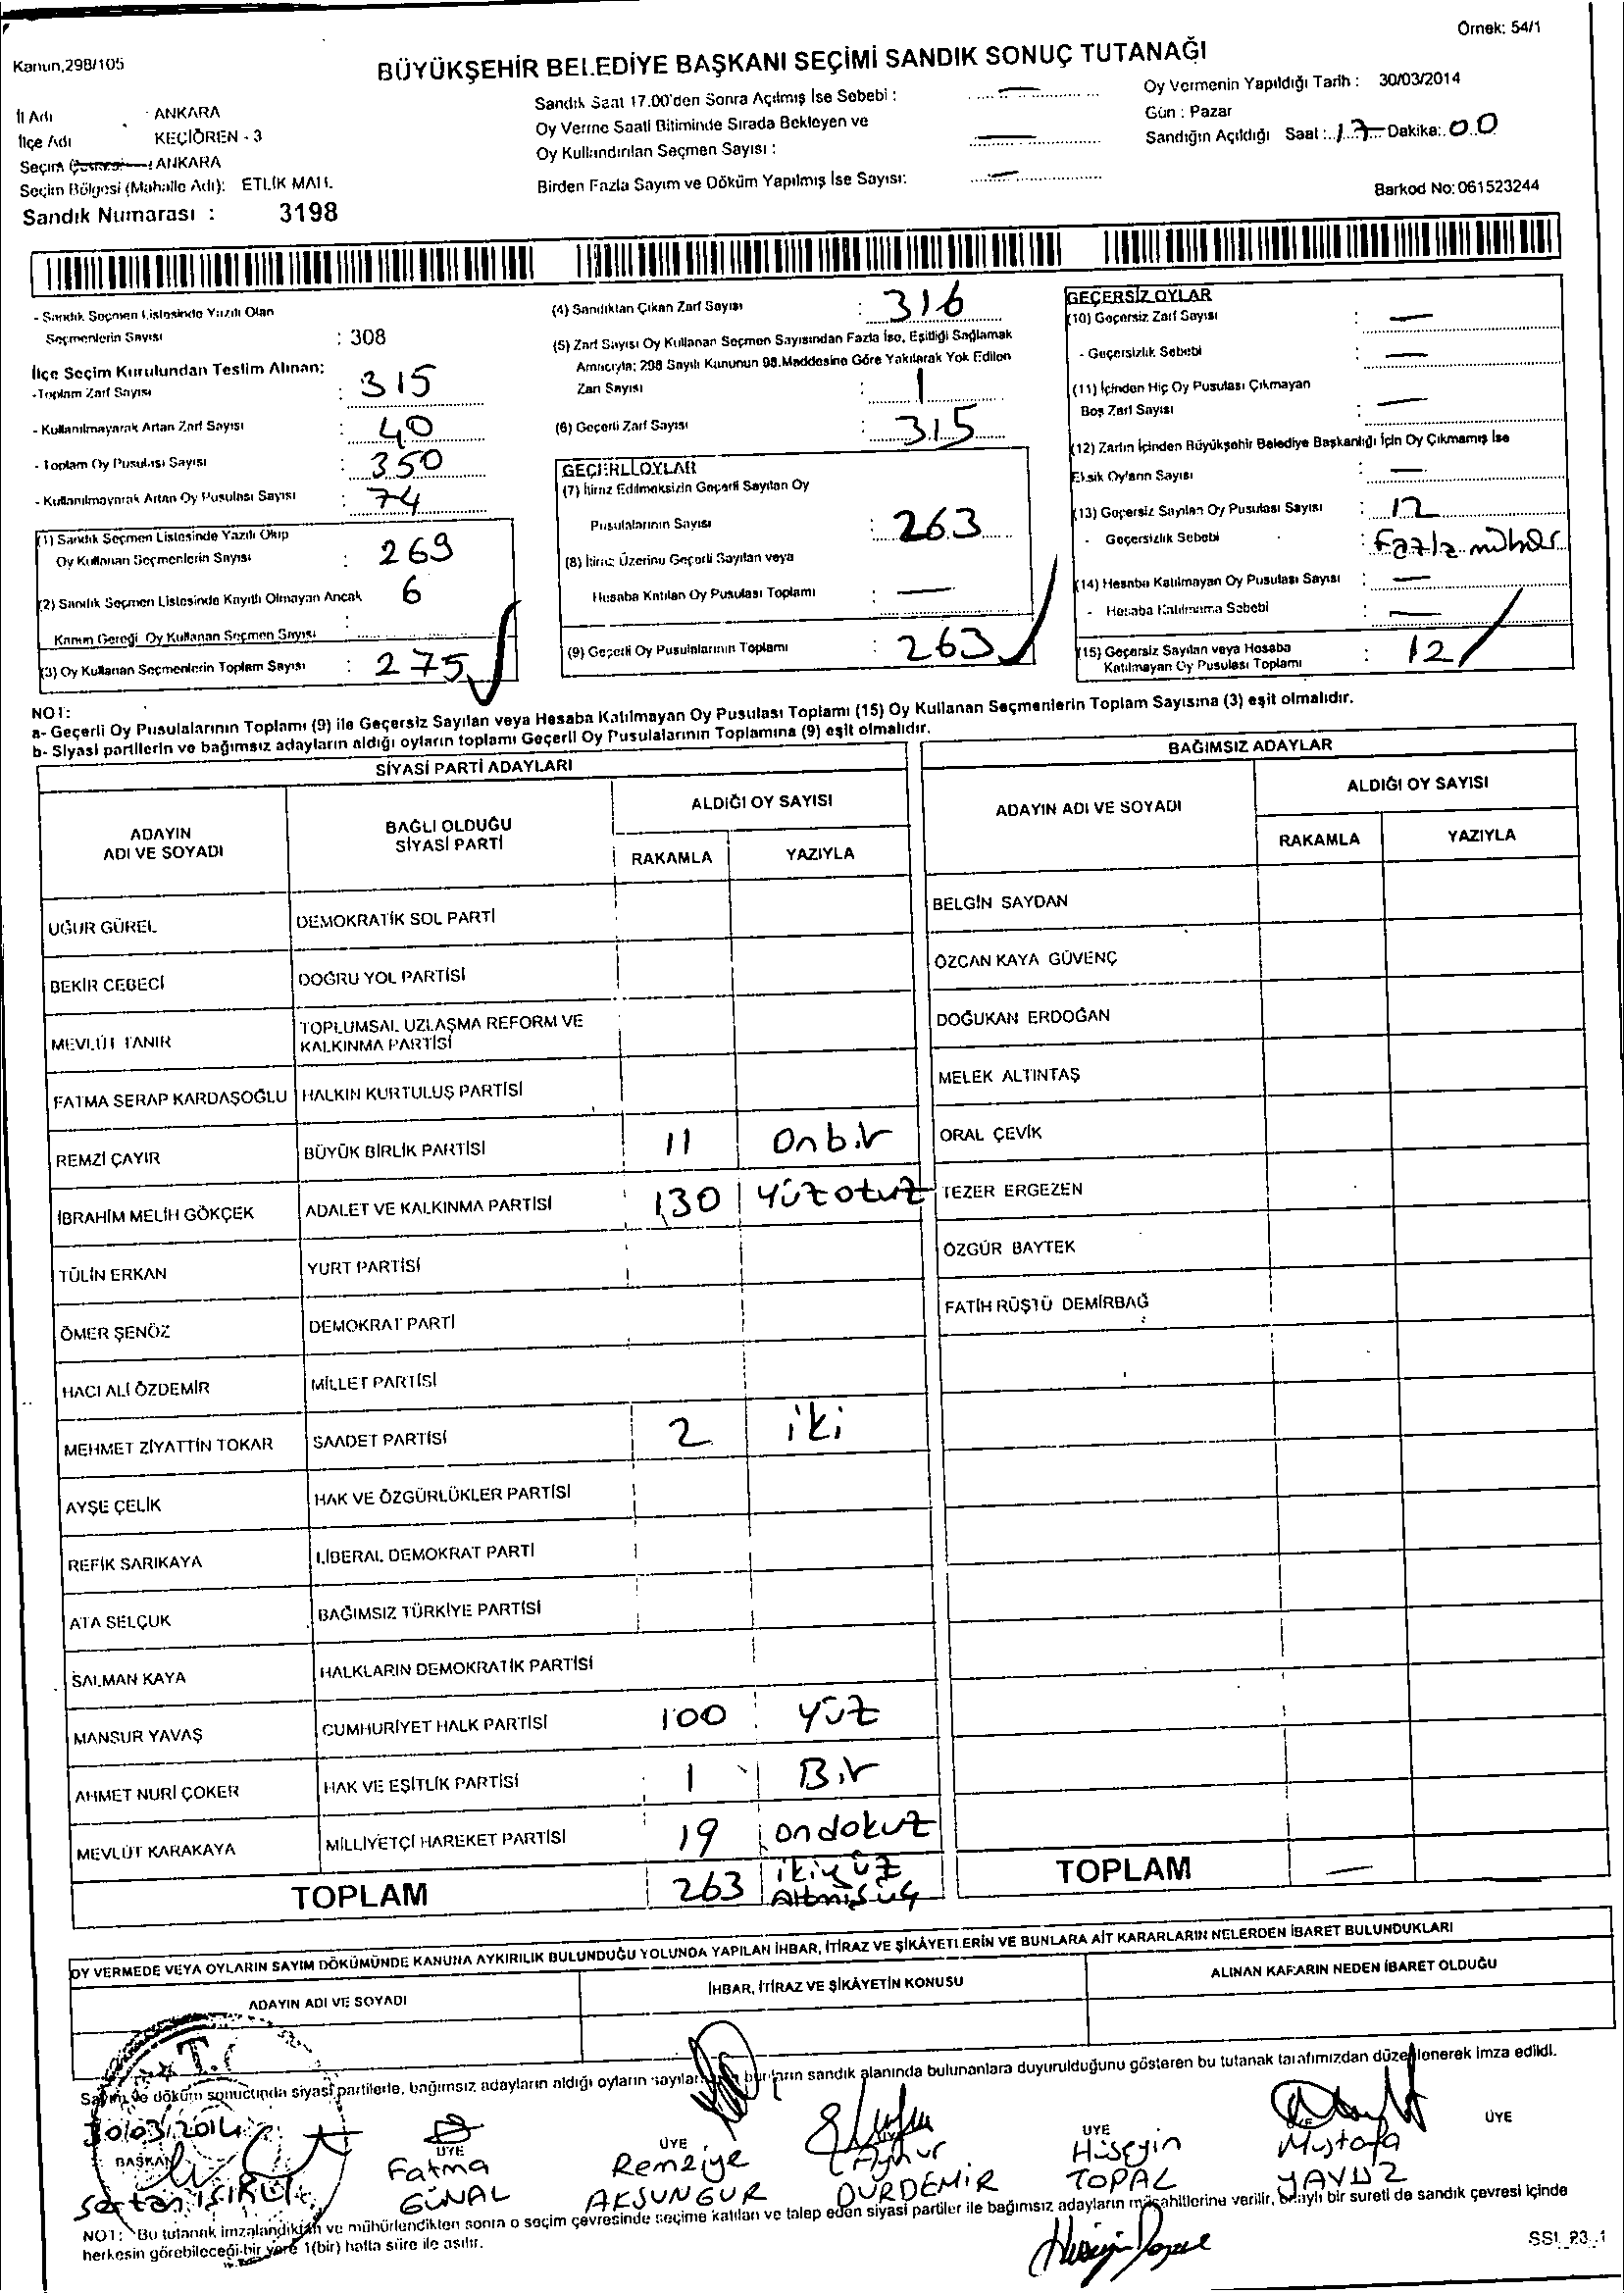 Örnek: 54/1
Kanun,298/105
BÜYÜKŞEHİR BELEDİYE BAŞKANI SEÇİMİ SANDIK SONUÇ TUTANAĞI
İl Adı : ANKARA
İlçe Adı KEÇİÖREN - 3
Seçim Çevresi : ANKARA
Seçim Bölgesi (Mahalle Adı): ETLİK MAH.
Sandık Numarası : 3198
Sandık Saat 17.00'den Sonra Açılmış İse Sebebi : —
Oy Verme Saati Bitiminde Sırada Bekleyen ve
Oy Kullandırılan Seçmen Sayısı : —
Birden Fazla Sayım ve Döküm Yapılmış İse Sayısı: —
Oy Vermenin Yapıldığı Tarih : 30/03/2014
Gün : Pazar
Sandığın Açıldığı Saat : 17 Dakika: 00
Barkod No: 061523244
- Sandık Seçmen Listesinde Yazılı Olan
Seçmenlerin Sayısı : 308
İlçe Seçim Kurulundan Teslim Alınan:
-Toplam Zarf Sayısı : 315
- Kullanılmayarak Artan Zarf Sayısı : 40
- Toplam Oy Pusulası Sayısı : 350
- Kullanılmayarak Artan Oy Pusulası Sayısı : 74
(1) Sandık Seçmen Listesinde Yazılı Olup
Oy Kullanan Seçmenlerin Sayısı : 269
(2) Sandık Seçmen Listesinde Kayıtlı Olmayan Ancak 6
Kanun Gereği Oy Kullanan Seçmen Sayısı :
(3) Oy Kullanan Seçmenlerin Toplam Sayısı : 275
(4) Sandıktan Çıkan Zarf Sayısı : 316
(5) Zarf Sayısı Oy Kullanan Seçmen Sayısından Fazla İse, Eşitliği Sağlamak
Amacıyla; 298 Sayılı Kanunun 98.Maddesine Göre Yakılarak Yok Edilen
Zarf Sayısı : 1
(6) Geçerli Zarf Sayısı : 315
GEÇERLİ OYLAR
(7) İtiraz Edilmeksizin Geçerli Sayılan Oy
Pusulalarının Sayısı : 263
(8) İtiraz Üzerine Geçerli Sayılan veya
Hesaba Katılan Oy Pusulası Toplamı : —
(9) Geçerli Oy Pusulalarının Toplamı : 263
GEÇERSİZ OYLAR
(10) Geçersiz Zarf Sayısı : —
- Geçersizlik Sebebi : —
(11) İçinden Hiç Oy Pusulası Çıkmayan
Boş Zarf Sayısı : —
(12) Zarfın İçinden Büyükşehir Belediye Başkanlığı İçin Oy Çıkmamış İse
Eksik Oyların Sayısı : —
(13) Geçersiz Sayılan Oy Pusulası Sayısı : 12
- Geçersizlik Sebebi : Fazla mühür
(14) Hesaba Katılmayan Oy Pusulası Sayısı : —
- Hesaba Katılmama Sebebi : —
(15) Geçersiz Sayılan veya Hesaba
Katılmayan Oy Pusulası Toplamı : 12
NOT:
a- Geçerli Oy Pusulalarının Toplamı (9) ile Geçersiz Sayılan veya Hesaba Katılmayan Oy Pusulası Toplamı (15) Oy Kullanan Seçmenlerin Toplam Sayısına (3) eşit olmalıdır.
b- Siyasi partilerin ve bağımsız adayların aldığı oyların toplamı Geçerli Oy Pusulalarının Toplamına (9) eşit olmalıdır.
SİYASİ PARTİ ADAYLARI
ADAYIN ADI VE SOYADI
BAĞLI OLDUĞU SİYASİ PARTİ
ALDIĞI OY SAYISI
RAKAMLA YAZIYLA
UĞUR GÜREL DEMOKRATİK SOL PARTİ
BEKİR CEBECİ DOĞRU YOL PARTİSİ
MEVLÜT TANIR TOPLUMSAL UZLAŞMA REFORM VE KALKINMA PARTİSİ
FATMA SERAP KARDAŞOĞLU HALKIN KURTULUŞ PARTİSİ
REMZİ ÇAYIR BÜYÜK BİRLİK PARTİSİ 11 Onbir
İBRAHİM MELİH GÖKÇEK ADALET VE KALKINMA PARTİSİ 130 yüzotuz
TÜLİN ERKAN YURT PARTİSİ
ÖMER ŞENÖZ DEMOKRAT PARTİ
HACI ALİ ÖZDEMİR MİLLET PARTİSİ
MEHMET ZİYATTİN TOKAR SAADET PARTİSİ 2 iki
AYŞE ÇELİK HAK VE ÖZGÜRLÜKLER PARTİSİ
REFİK SARIKAYA LİBERAL DEMOKRAT PARTİ
ATA SELÇUK BAĞIMSIZ TÜRKİYE PARTİSİ
SALMAN KAYA HALKLARIN DEMOKRATİK PARTİSİ
MANSUR YAVAŞ CUMHURİYET HALK PARTİSİ 100 yüz
AHMET NURİ ÇOKER HAK VE EŞİTLİK PARTİSİ 1 Bir
MEVLÜT KARAKAYA MİLLİYETÇİ HAREKET PARTİSİ 19 ondokuz
TOPLAM 263 ikiyüz Altmışüç
BAĞIMSIZ ADAYLAR
ADAYIN ADI VE SOYADI
ALDIĞI OY SAYISI
RAKAMLA YAZIYLA
BELGİN SAYDAN
ÖZCAN KAYA GÜVENÇ
DOĞUKAN ERDOĞAN
MELEK ALTINTAŞ
ORAL ÇEVİK
TEZER ERGEZEN
ÖZGÜR BAYTEK
FATİH RÜŞTÜ DEMİRBAĞ
TOPLAM —
OY VERMEDE VEYA OYLARIN SAYIM DÖKÜMÜNDE KANUNA AYKIRILIK BULUNDUĞU YOLUNDA YAPILAN İHBAR, İTİRAZ VE ŞİKÂYETLERİN VE BUNLARA AİT KARARLARIN NELERDEN İBARET BULUNDUKLARI
ADAYIN ADI VE SOYADI
İHBAR, İTİRAZ VE ŞİKÂYETİN KONUSU
ALINAN KARARIN NEDEN İBARET OLDUĞU
T.C
Sayım ve döküm sonucunda siyasi partilerle, bağımsız adayların aldığı oyların sayıları bunların sandık alanında bulunanlara duyurulduğunu gösteren bu tutanak tarafımızdan düzenlenerek imza edildi.
30/03/2014
BAŞKAN ÜYE ÜYE ÜYE ÜYE ÜYE
Sertan
Fatma GÜNAL
Remziye AKSUNGUR
Aynur DURDEMİR
Hüseyin TOPAL
Mustafa YAVUZ
NOT: Bu tutanak imzalandıktan ve mühürlendikten sonra o seçim çevresinde seçime katılan ve talep eden siyasi partiler ile bağımsız adayların müşahitlerine verilir, onaylı bir sureti de sandık çevresi içinde
herkesin görebileceği bir yere 1(bir) hafta süre ile asılır.
SSI_23_1